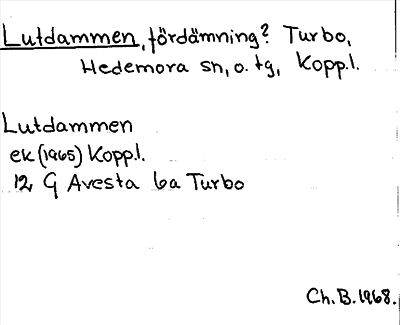 Lutdammen, fördämning? Turbo,
Hedemora sn, o. tg, Kopp.l.
Lutdammen
ek (1965) Kopp.l.
12 G Avesta 6a Turbo
Ch. B. 1968.